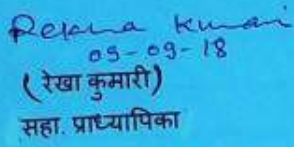 Rekha Kumari
05-09-18
(रेखा कुमारी)
सहा. प्राध्यापिका